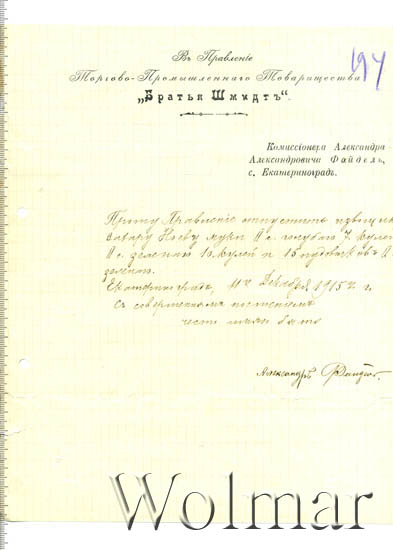 Въ Правленіе
194
Торгово-Промышленнаго Товарищества
„Братья Шмидтъ“.
Комиссіонера Александра
Александровича Файдель,
с. Екатериноградъ.
Прошу Правленіе отпустить извощику
Захару Ноеву муки II с. голубою 7 кулей
II с. зеленой 10 кулей и 15 пудовыхъ
зеленою.
Екатериноградъ, 11 Декабря 191 г.
Съ совершеннымъ почтеніемъ
честь имѣю быть
Александръ Файдель.
Wolmar